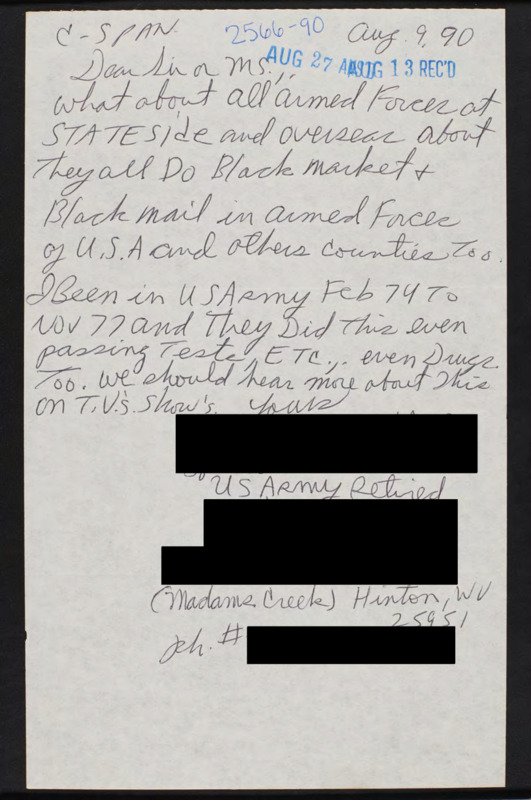 C-SPAN. 2566-90 Aug. 9, 90
AUG 27 AUG 13 REC'D
Dear Sir or Ms.,
what about all armed Forces at
STATESide and overseas about
they all Do Black market &
Black mail in armed Forces
of U.S.A and others counties Too.
I Been in USArmy Feb 74 To
Nov 77 and They Did This even
passing Tests, ETC., even Drugs
Too. we should hear more about This
on T.V.'s. Show's. Yours
US ARMY Retired
(Madams Creek) Hinton, WV
25951
ph. #